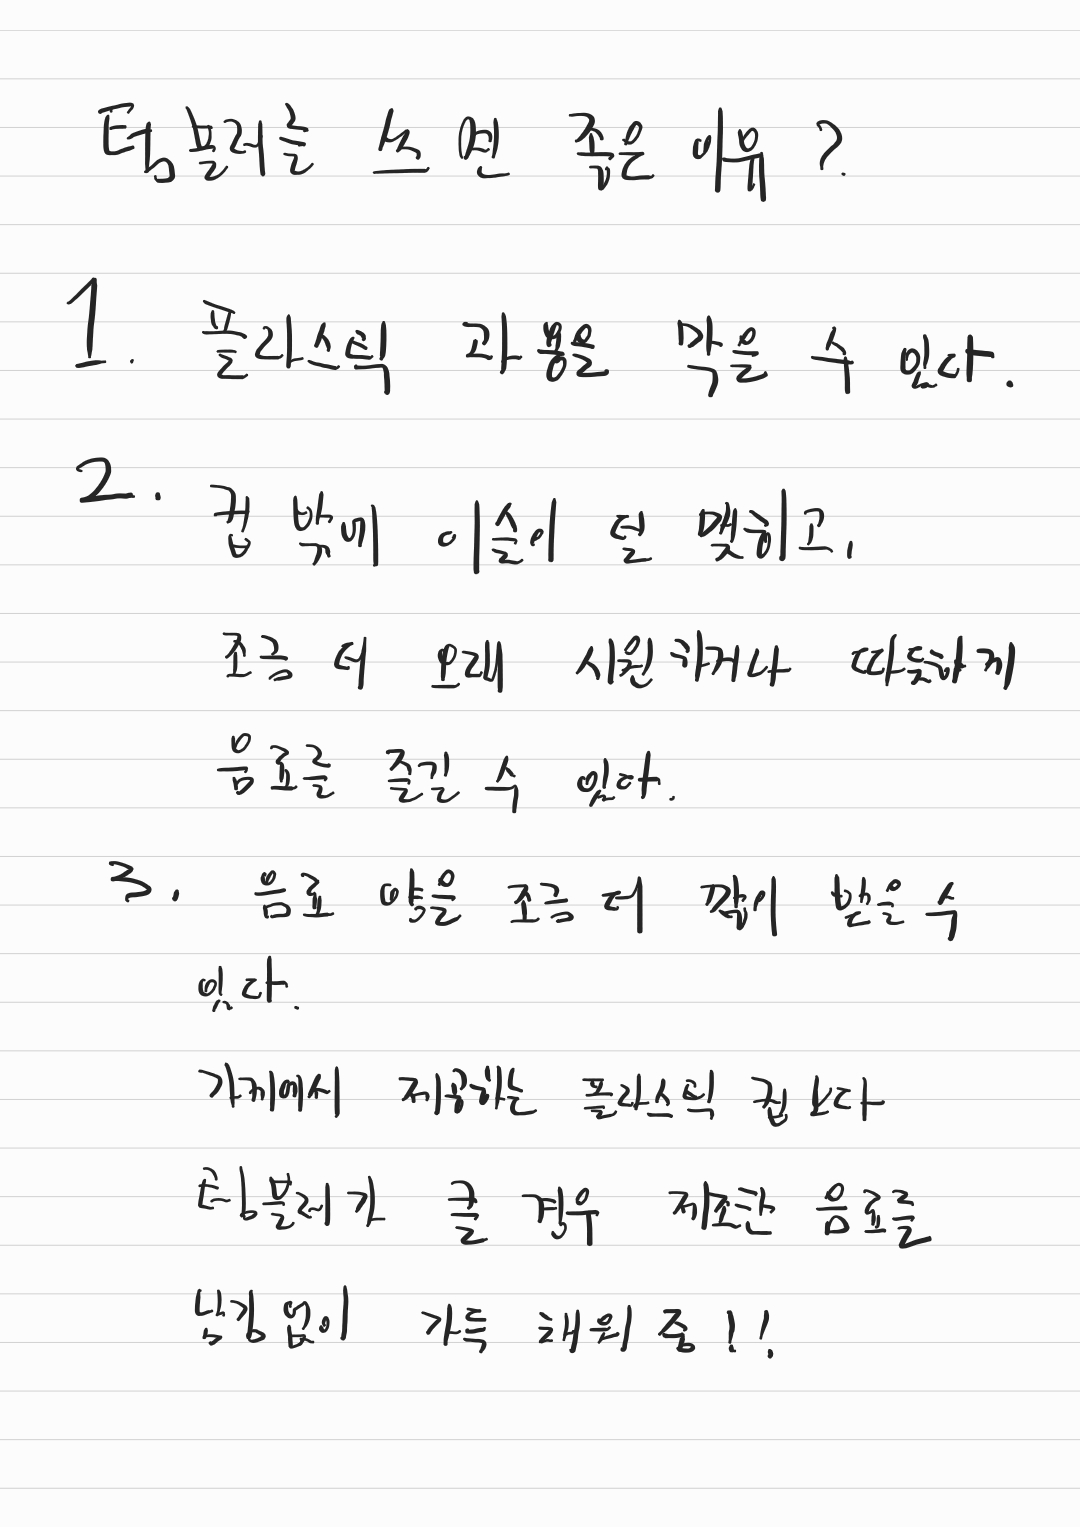 텀블러를 쓰면 좋은 이유?
1. 플라스틱 과용을 막을 수 있다.
2. 컵 밖에 이슬이 덜 맺히고,
조금 더 오래 시원하거나 따뜻하게
음료를 즐길 수 있다.
3. 음료 양을 조금 더 많이 받을 수
있다.
가게에서 제공하는 플라스틱 컵 보다
텀블러가 클 경우 제조한 음료를
남김없이 가득 채워 줌!!